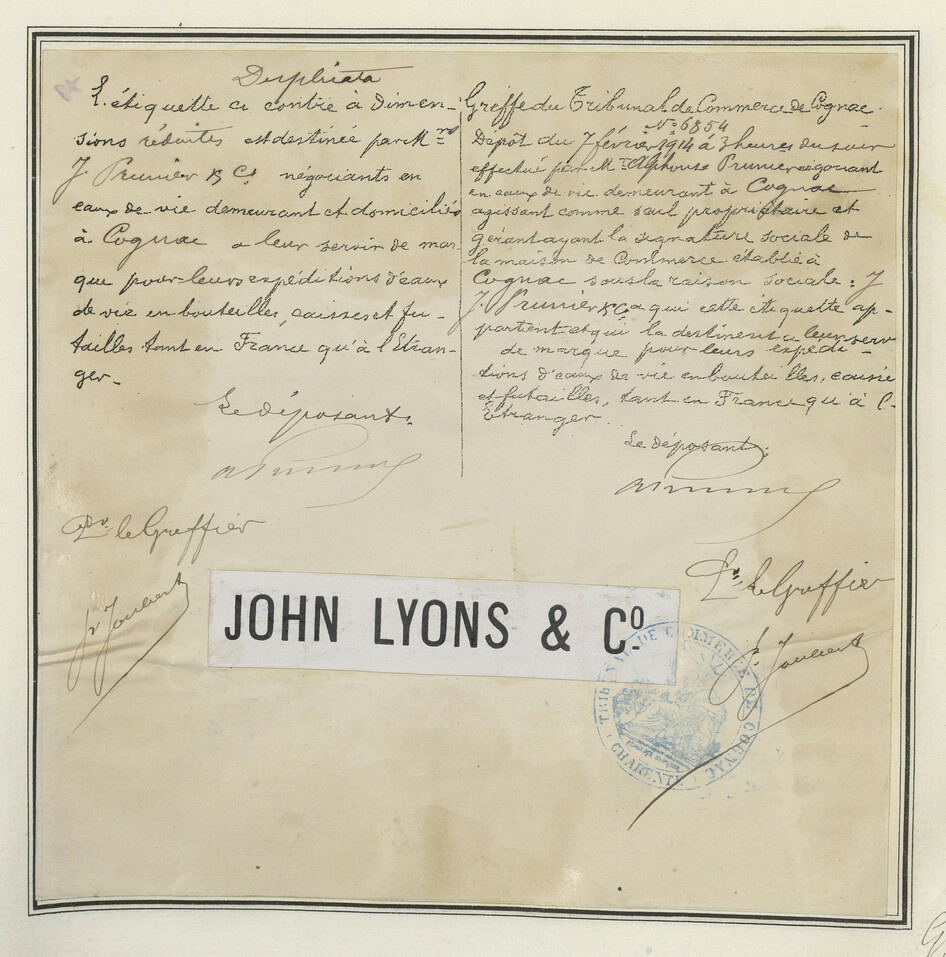 Duplicata
L'étiquette ci contre à Dimen-
sions réduites est destinée par M.rs
J Prunier & Cº négociants en
eaux de vie demeurant et domiciliés
à Cognac a leur servir de mar-
que pour leurs expéditions d'eaux
de vie en bouteilles, caisses et fu-
tailles tant en France qu'à l'Etran-
ger.
Le déposant.
APrunier
Pr. le Greffier
Joubert
Greffe du Tribunal de Commerce de Cognac.
Nº 6854
Dépôt du 7 février 1914 à 3 heures du soir
effectué par M.r Alphonse Prunier négociant
en eaux de vie demeurant à Cognac
agissant comme seul propriétaire et
gérant ayant la signature sociale de
la maison de Commerce établie à
Cognac sous la raison sociale: J
J. Prunier & Co a qui cette étiquette ap-
partient et qui la destinent a leur serv
de marque pour leurs expédi-
tions d'eaux de vie en bouteilles, caisse
et futailles, tant en France qu'à l'
Etranger.
Le déposant;
APrunier
Pr. le Greffier
Joubert
JOHN LYONS & Cº.
TRIBUNAL DE COMMERCE DE COGNAC
CHARENTE